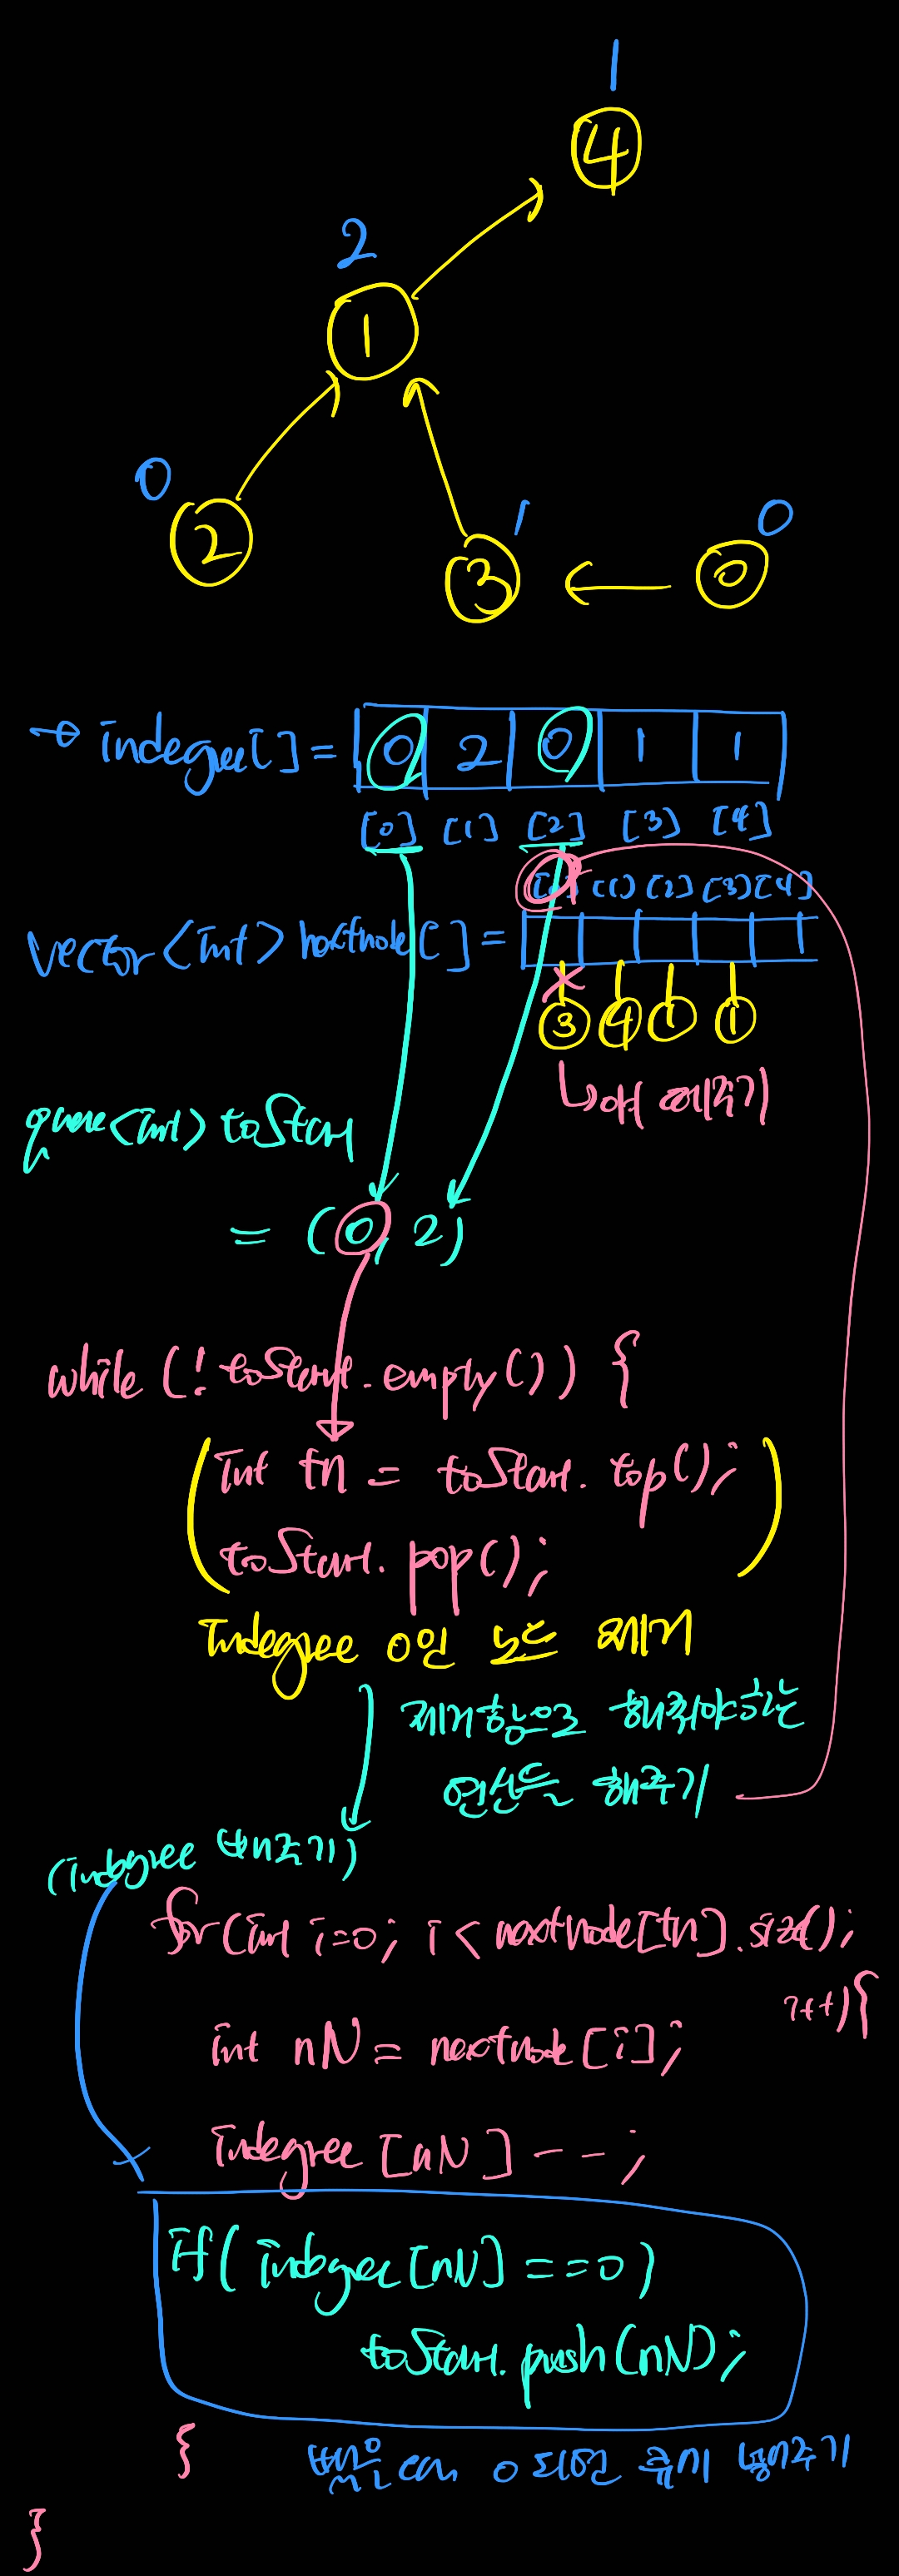 1
4
2
1
0
2
1
3
0
0
→ indegree[] = 0 2 0 1 1
[0] [1] [2] [3] [4]
[0] [1] [2] [3] [4]
vector<int> nextnode[] =
3 4 1 1
queue<int> toStart
= (0, 2)
while (! toStart.empty()) {
int tn = toStart. top();
toStart. pop();
Indegree 0인 노드 제거
제거함으로 해줘야하는
연산들 해주기
(indegree 빼주기)
for(int i=0; i < nextnode[tn].size();
i++){
int nN = nextnode[i];
indegree [nN] --;
if( indegree[nN] ==0)
toStart. push(nN);
}
0 되면 큐에 넣어주기
}